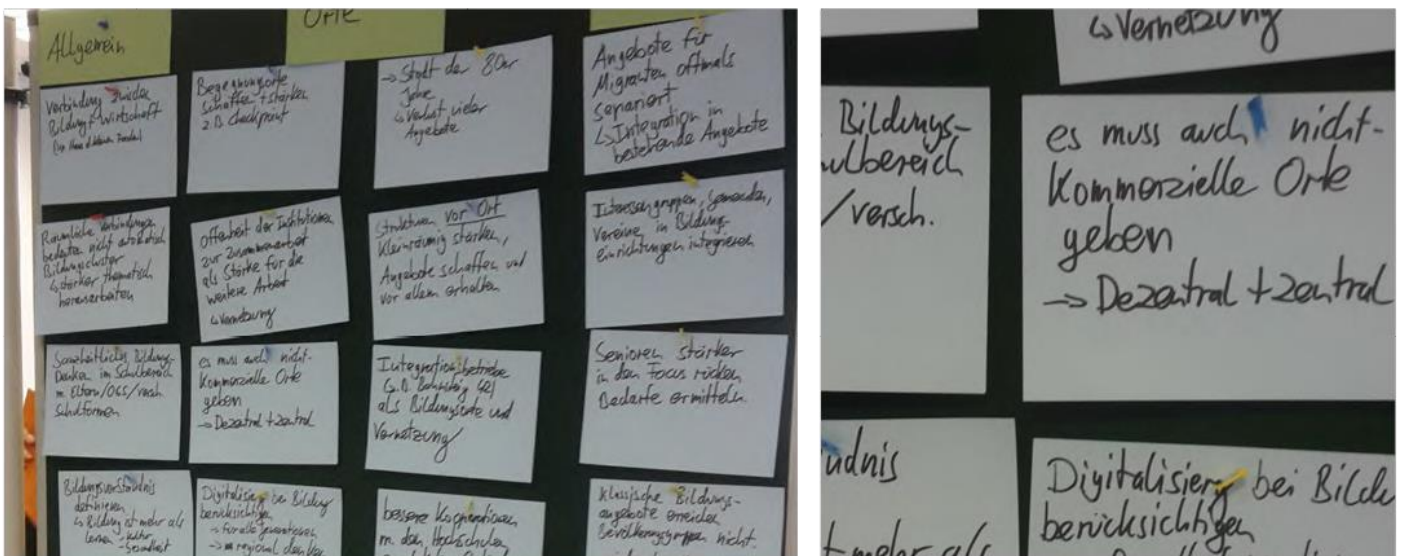 Allgemein
Orte
Verbindung zwischen
Bildung + Wirtschaft
Begegnungsorte
schaffen + stärken
z.B. Checkpoint
→ Stadt der 80er
Jahre
↳ Verlust vieler
Angebote
Angebote für
Migranten oftmals
separiert
↳ Integration in
bestehende Angebote
Räumliche Verbindungen
bedeuten nicht automatisch
Bildungscluster
↳ stärker thematisch
herausarbeiten
Offenheit der Institutionen
zur Zusammenarbeit
als Stärke für die
weitere Arbeit
↳ Vernetzung
Strukturen vor Ort
kleinräumig stärken,
Angebote schaffen und
vor allem erhalten
Interessengruppen, Gemeinden,
Vereine in Bildungs-
einrichtungen integrieren
Ganzheitliches Bildungs-
Denken im Schulbereich
m. Eltern/OGS/versch.
Schulformen
es muss auch nicht-
kommerzielle Orte
geben
→ Dezentral + zentral
Integrationsbetriebe
(z.B. Bahnsteig 42)
als Bildungsorte und
Vernetzung
Senioren stärker
in den Focus rücken
Bedarfe ermitteln
Bildungsverständnis
definieren
↳ Bildung ist mehr als
lernen - Kultur
- Gesundheit
Digitalisierg bei Bildung
berücksichtigen
→ für alle Generationen
→ regional denken
bessere Kooperationen
m. den Hochschulen
Klassische Bildungs-
angebote erreichen
Bevölkerungsgruppen nicht
↳ Vernetzung
Bildungs-
ulbereich
/versch.
es muss auch nicht-
kommerzielle Orte
geben
→ Dezentral + zentral
ändnis
t mehr als
Digitalisierg bei Bildu
berücksichtigen